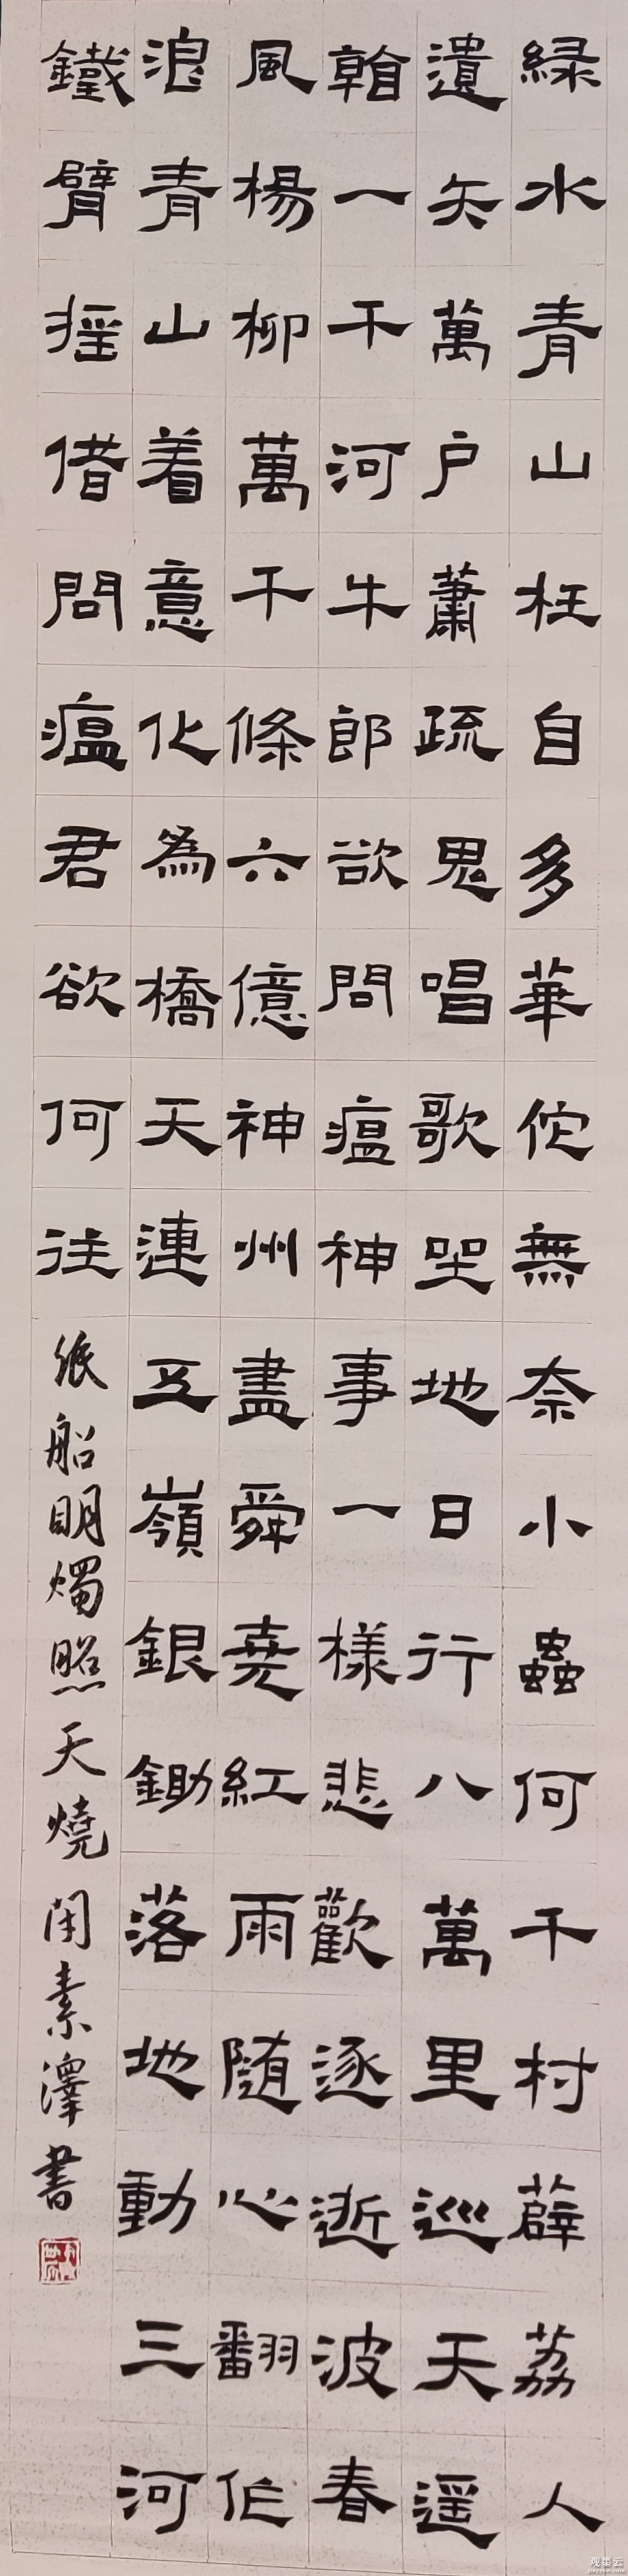 緑水青山枉自多華佗無奈小蟲何千村薜荔人
遺矢萬户蕭疏鬼唱歌坐地日行八萬里巡天遥
看一千河牛郎欲問瘟神事一樣悲歡逐逝波春
風楊柳萬千條六億神州盡舜堯紅雨随心翻作
浪青山着意化為橋天連五嶺銀鋤落地動三河
鐵臂摇借問瘟君欲何往紙船明燭照天燒素澤書